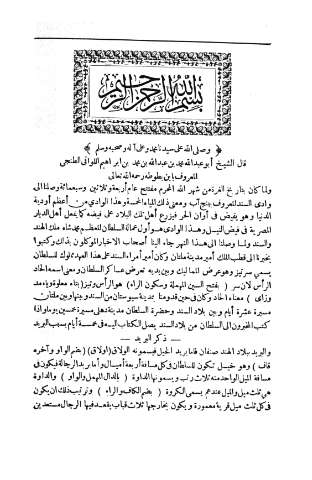 بسم الله الرحمن الرحيم
وصلى الله على سيدنا محمد وعلى آله وصحبه وسلم
قال الشيخ أبو عبد الله محمد بن عبد الله بن محمد بن ابراهيم اللواتى الطنجى
المعروف بابن بطوطة رحمه الله تعالى
ولما كان بتاريخ الغرة من شهر الله المحرم مفتتح عام أربعة وثلاثين وسبعمائة وصلنا الى
وادى السند المعروف ببنج آب ومعنى ذلك المياه الخمسة وهذا الوادى من أعظم أودية
الدنيا وهو يفيض فى أوان الحر فيزرع أهل تلك البلاد على فيضه كما يفعل أهل الديار
المصرية فى فيض النيل وهذا الوادى هو أول عمالة السلطان المعظم محمد شاه ملك الهند
والسند ولما وصلنا الى هذا النهر جاء الينا أصحاب الاخبار الموكلون بذلك وكتبوا
بخبرنا الى قطب الملك أمير مدينة ملتان وكان أمير أمراء السند على هذا العهد مملوك للسلطان
يسمى سرتيز وهو عرض المماليك وبين يديه تعرض عساكر السلطان ومعنى اسمه الحاد
الرأس لان سر ( بفتح السين المهملة وسكون الراء ) هو الرأس وتيز ( بتاء معلوة وياء مد
وزاى ) معناه الحاد وكان فى حين قدومنا بمدينة سيوستان من السند وبينها وبين ملتان
مسيرة عشرة أيام وبين بلاد السند وحضرة السلطان مدينة دهلى مسيرة خمسين يوما واذا
كتب المخبرون الى السلطان من بلاد السند يصل الكتاب اليه فى خمسة أيام بسبب البريد
ذكر البريد
والبريد ببلاد الهند صنفان فاما بريد الخيل فيسمونه الولاق (أولاق) ( بضم الواو وآخره
قاف ) وهو خيل تكون للسلطان فى كل مسافة أربعة أميال وأما بريد الرجالة فيكون فى
مسافة الميل الواحد منه ثلاث رتب ويسمونها الداوة ( بالدال المهمل والواو ) والداوة
هى ثلث ميل والميل عندهم يسمى الكروة ( بضم الكاف والراء ) وترتيب ذلك ان يكون
فى كل ثلث ميل قرية معمورة و يكون بخارجها ثلاث قباب يقعد فيها الرجال مستعدين